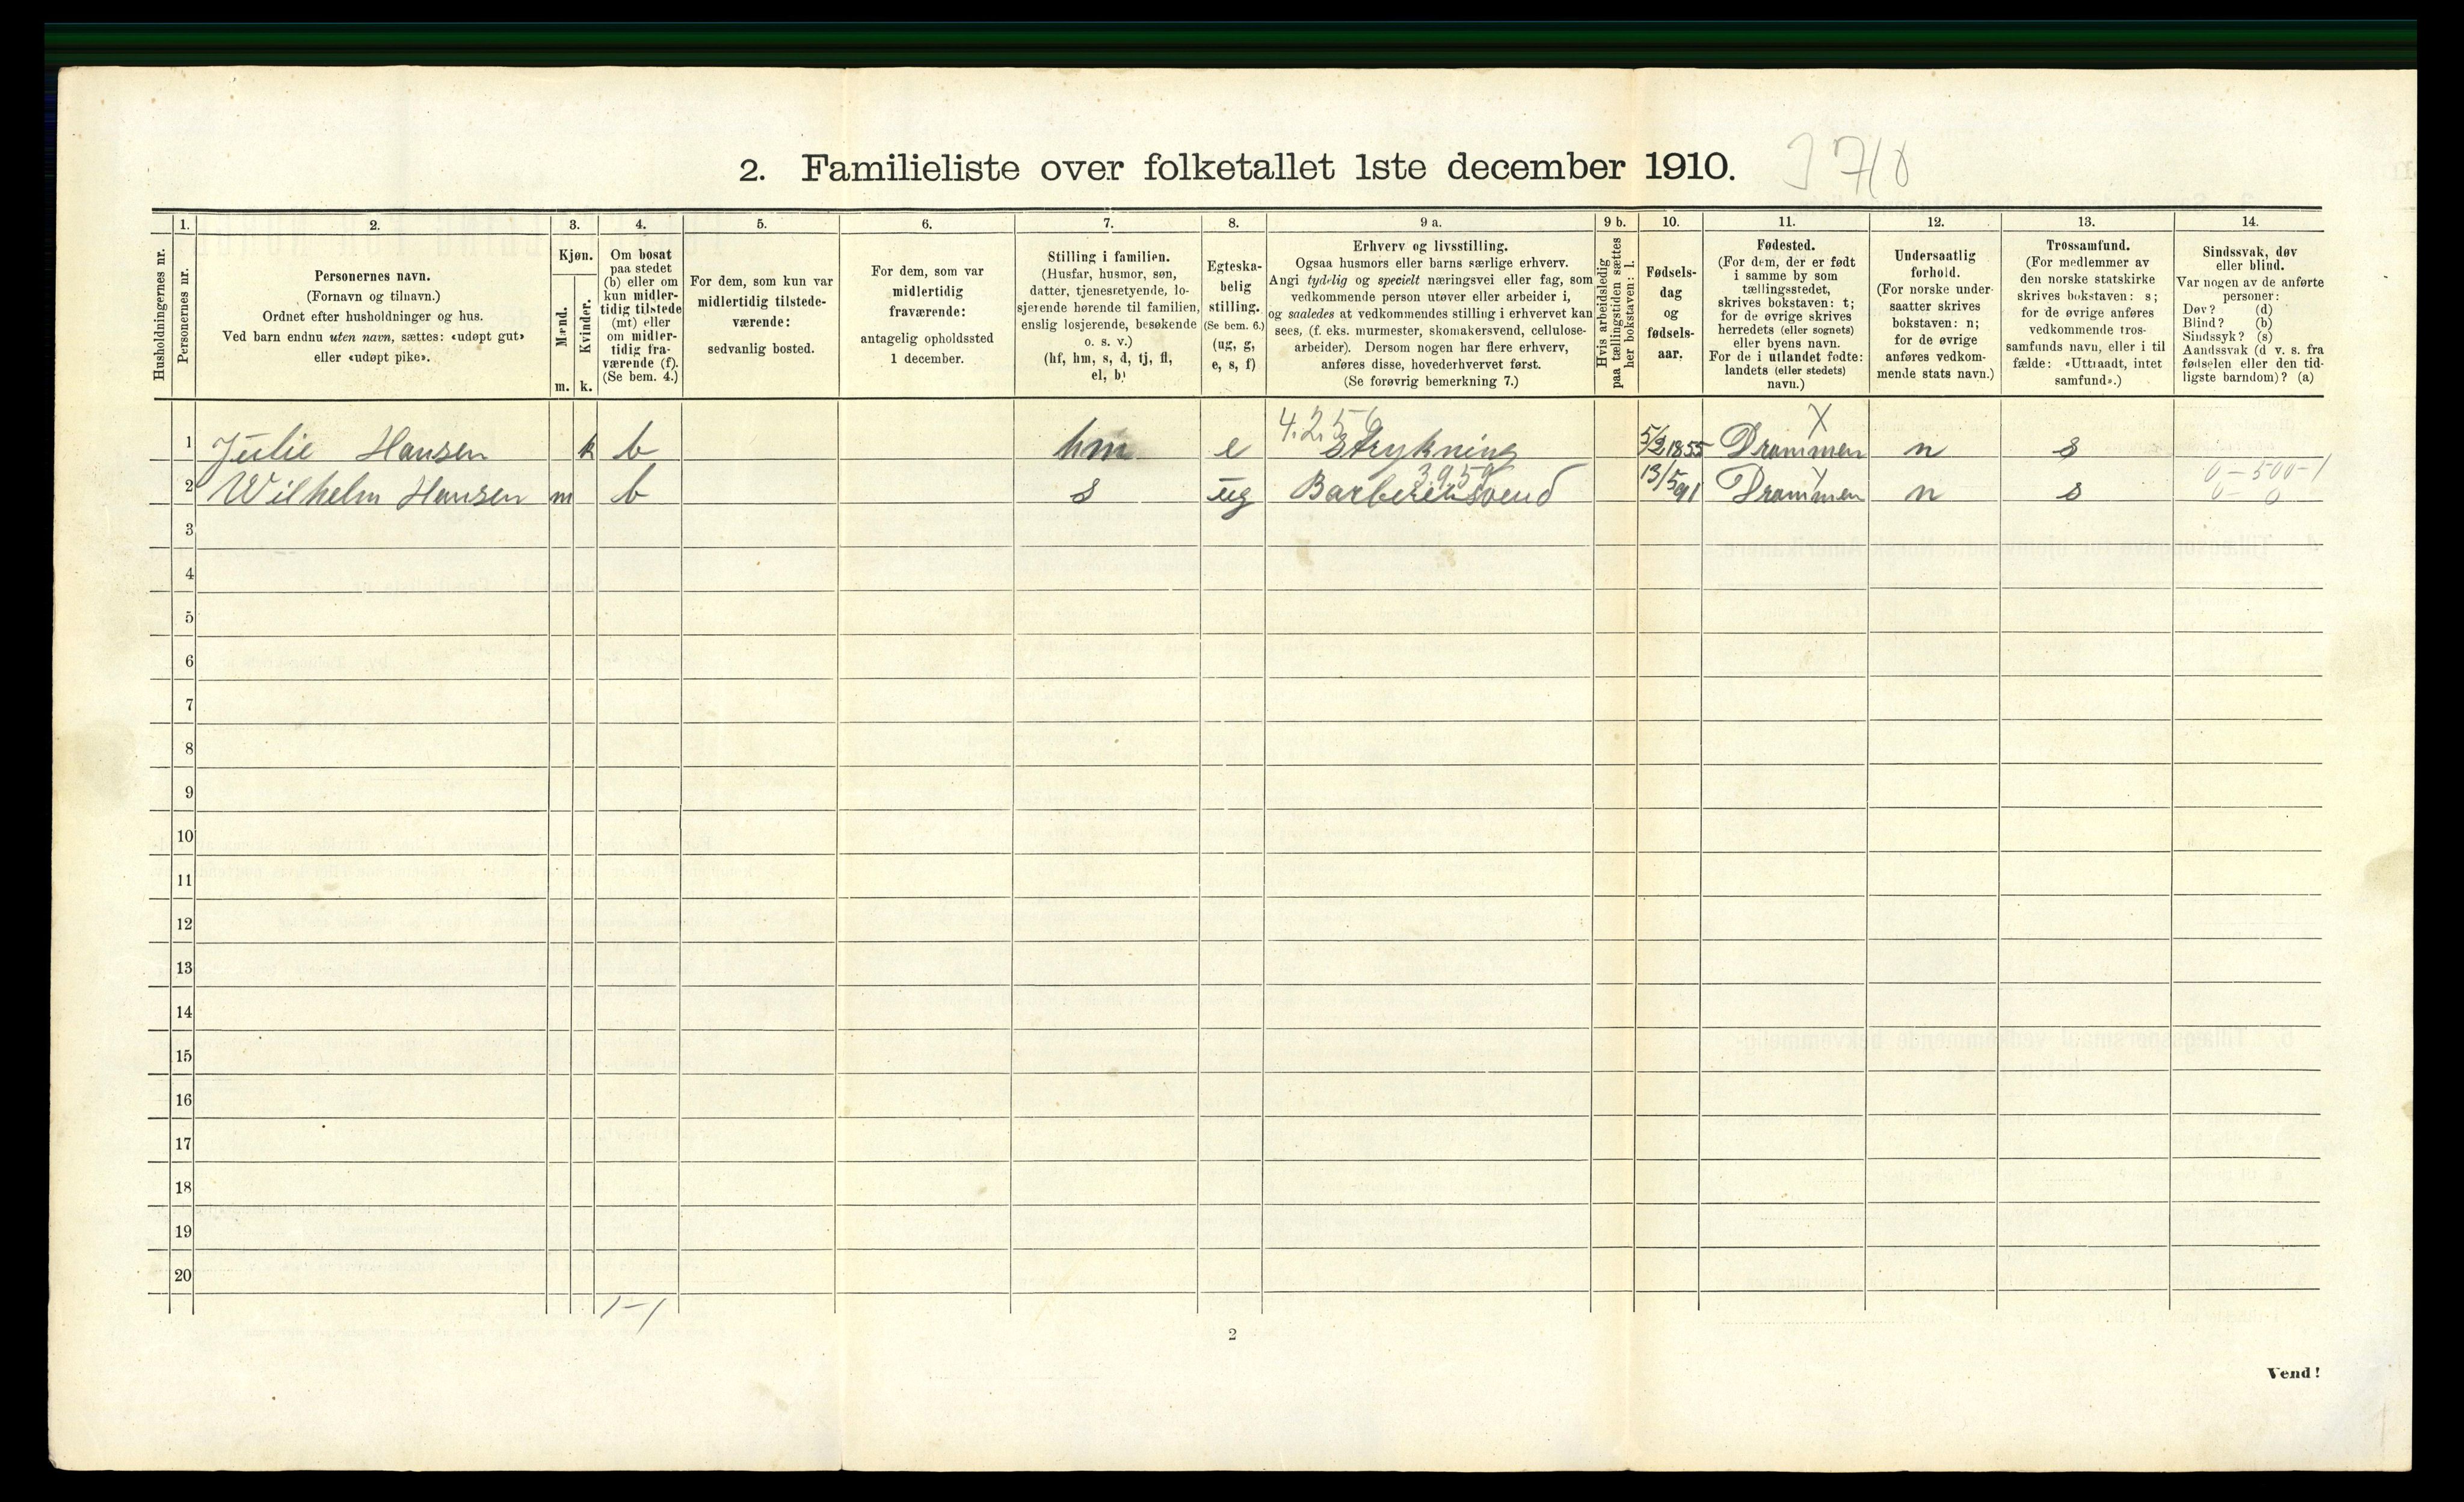 2. Familieliste over folketallet 1ste december 1910.
1. 2. 3. 4. 5. 6. 7. 8. 9 a. 9 b. 10. 11. 12. 13. 14.
Husholdningernes nr.
Personernes nr.
Personernes navn.
(Fornavn og tilnavn.)
Ordnet efter husholdninger og hus.
Ved barn endnu uten navn, sættes: «udøpt gut»
eller «udøpt pike».
Kjøn.
Mænd.
Kvinder.
m. k.
Om bosat
paa stedet
(b) eller om
kun midler-
tidig tilstede
(mt) eller
om midler-
tidig fra-
værende (f).
(Se bem. 4.)
For dem, som kun var
midlertidig tilstede-
værende:
sedvanlig bosted.
For dem, som var
midlertidig
fraværende:
antagelig opholdssted
1 december.
Stilling i familien.
(Husfar, husmor, søn,
datter, tjenestetyende, lo-
sjerende hørende til familien,
enslig losjerende, besøkende
o. s. v.)
(hf, hm, s, d, tj, fl,
el, b)
Egteska-
belig
stilling.
(Se bem. 6.)
(ug, g,
e, s, f)
Erhverv og livsstilling.
Ogsaa husmors eller barns særlige erhverv.
Angi tydelig og specielt næringsvei eller fag, som
vedkommende person utøver eller arbeider i,
og saaledes at vedkommendes stilling i erhvervet kan
sees, (f. eks. murmester, skomakersvend, cellulose-
arbeider). Dersom nogen har flere erhverv,
anføres disse, hovederhvervet først.
(Se forøvrig bemerkning 7.)
Hvis arbeidsledig
paa tællingstiden sættes
her bokstaven: l.
Fødsels-
dag
og
fødsels-
aar.
Fødested.
(For dem, der er født
i samme by som
tællingsstedet,
skrives bokstaven: t;
for de øvrige skrives
herredets (eller sognets)
eller byens navn.
For de i utlandet fødte:
landets (eller stedets)
navn.)
Undersaatlig
forhold.
(For norske under-
saatter skrives
bokstaven: n;
for de øvrige
anføres vedkom-
mende stats navn.)
Trossamfund.
(For medlemmer av
den norske statskirke
skrives bokstaven: s;
for de øvrige anføres
vedkommende tros-
samfunds navn, eller i til
fælde: «Uttraadt, intet
samfund».)
Sindssvak, døv
eller blind.
Var nogen av de anførte
personer:
Døv? (d)
Blind? (b)
Sindssyk? (s)
Aandssvak (d v. s. fra
fødselen eller den tid-
ligste barndom)? (a)
4.2.56 X
1 Julie Hansen k b hm e Strykning 5/2 1855 Drammen n s
3959 0-500-1
2 Wilhelm Hansen m b s ug Barberersvend 13/5 91 Drammen n s 0-0
3
4
5
6
7
8
9
10
11
12
13
14
15
16
17
18
19
20
1-1
2
Vend!